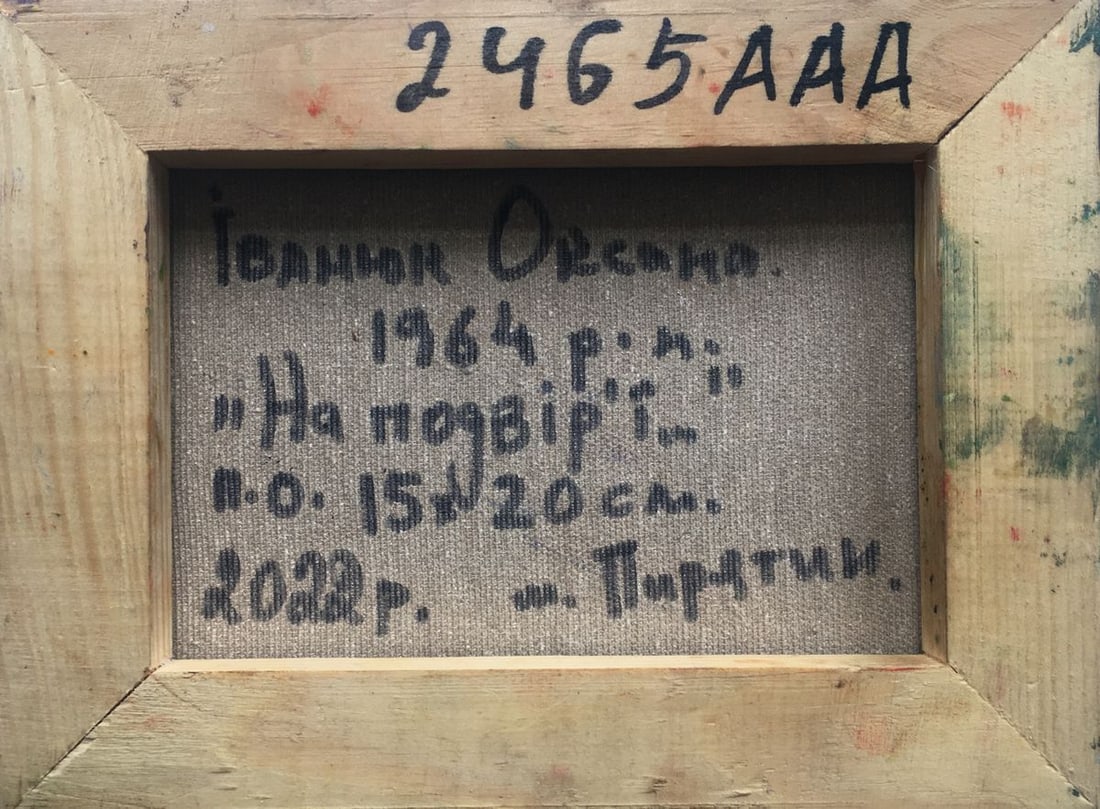 2465AAA
Іванюк Оксана.
1964 р.н.
"На подвір'ї..."
п.о. 15х20см.
2022р. м. Пирятин.